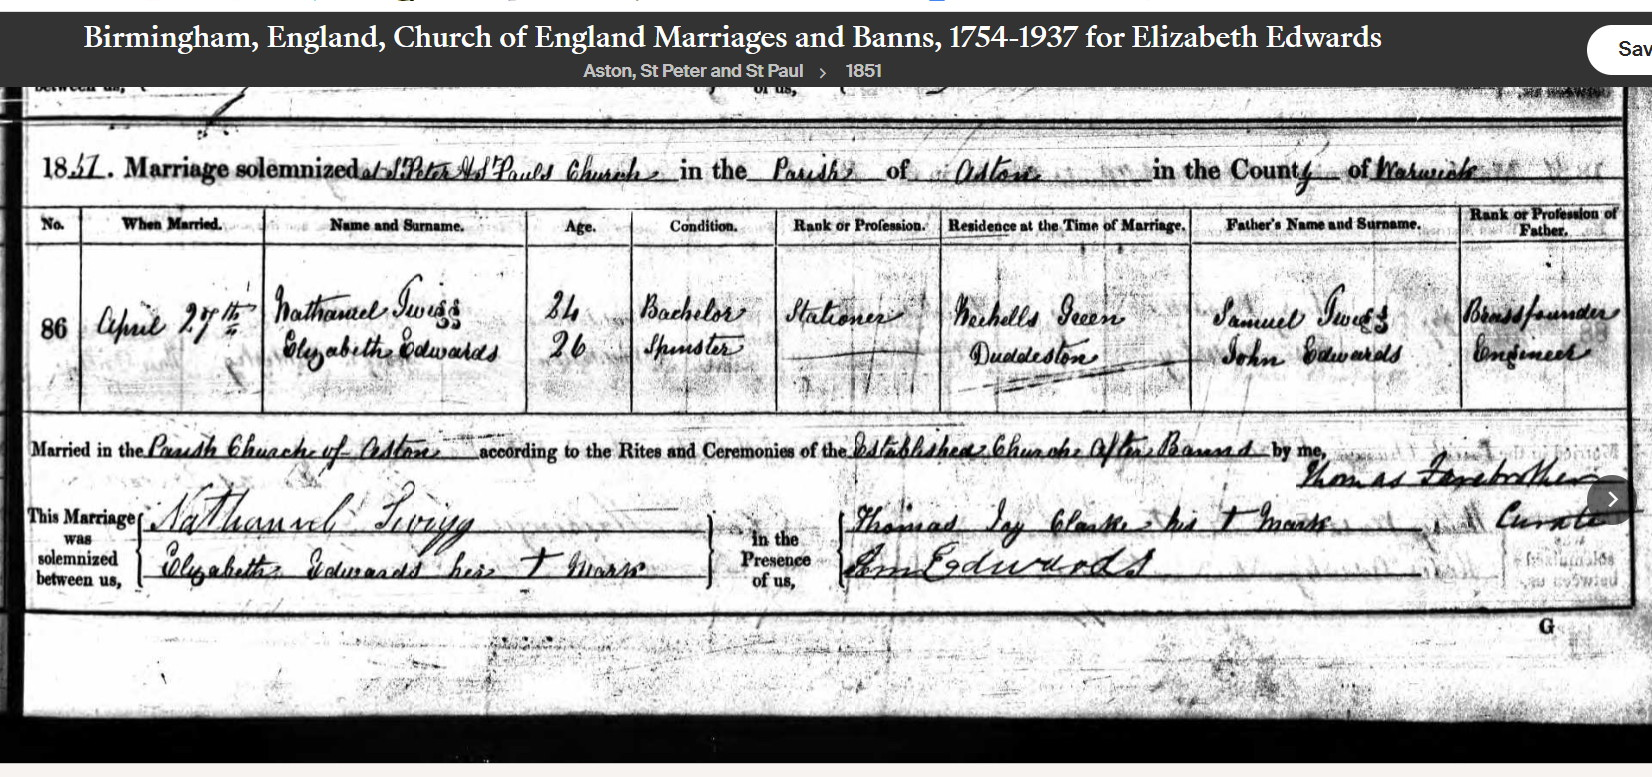 Birmingham, England, Church of England Marriages and Banns, 1754-1937 for Elizabeth Edwards
Sav
Aston, St Peter and St Paul > 1851
between us,
of us,
1851. Marriage solemnized at St Peter & St Pauls Church in the Parish of Aston in the County of Warwick
No. When Married. Name and Surname. Age. Condition. Rank or Profession. Residence at the Time of Marriage. Father's Name and Surname. Rank or Profession of Father.
86 April 27th Nathaniel Twigg 24 Bachelor Stationer Nechells Green Samuel Twigg Brassfounder
Elizabeth Edwards 26 Spinster Duddeston John Edwards Engineer
Married in the Parish Church of Aston according to the Rites and Ceremonies of the Established Church After Banns by me,
Thomas
This Marriage was solemnized between us, Nathaniel Twigg in the Presence of us, Thomas Jay Clarke his † mark Curate
Elizabeth Edwards her † Mark Edwards
G